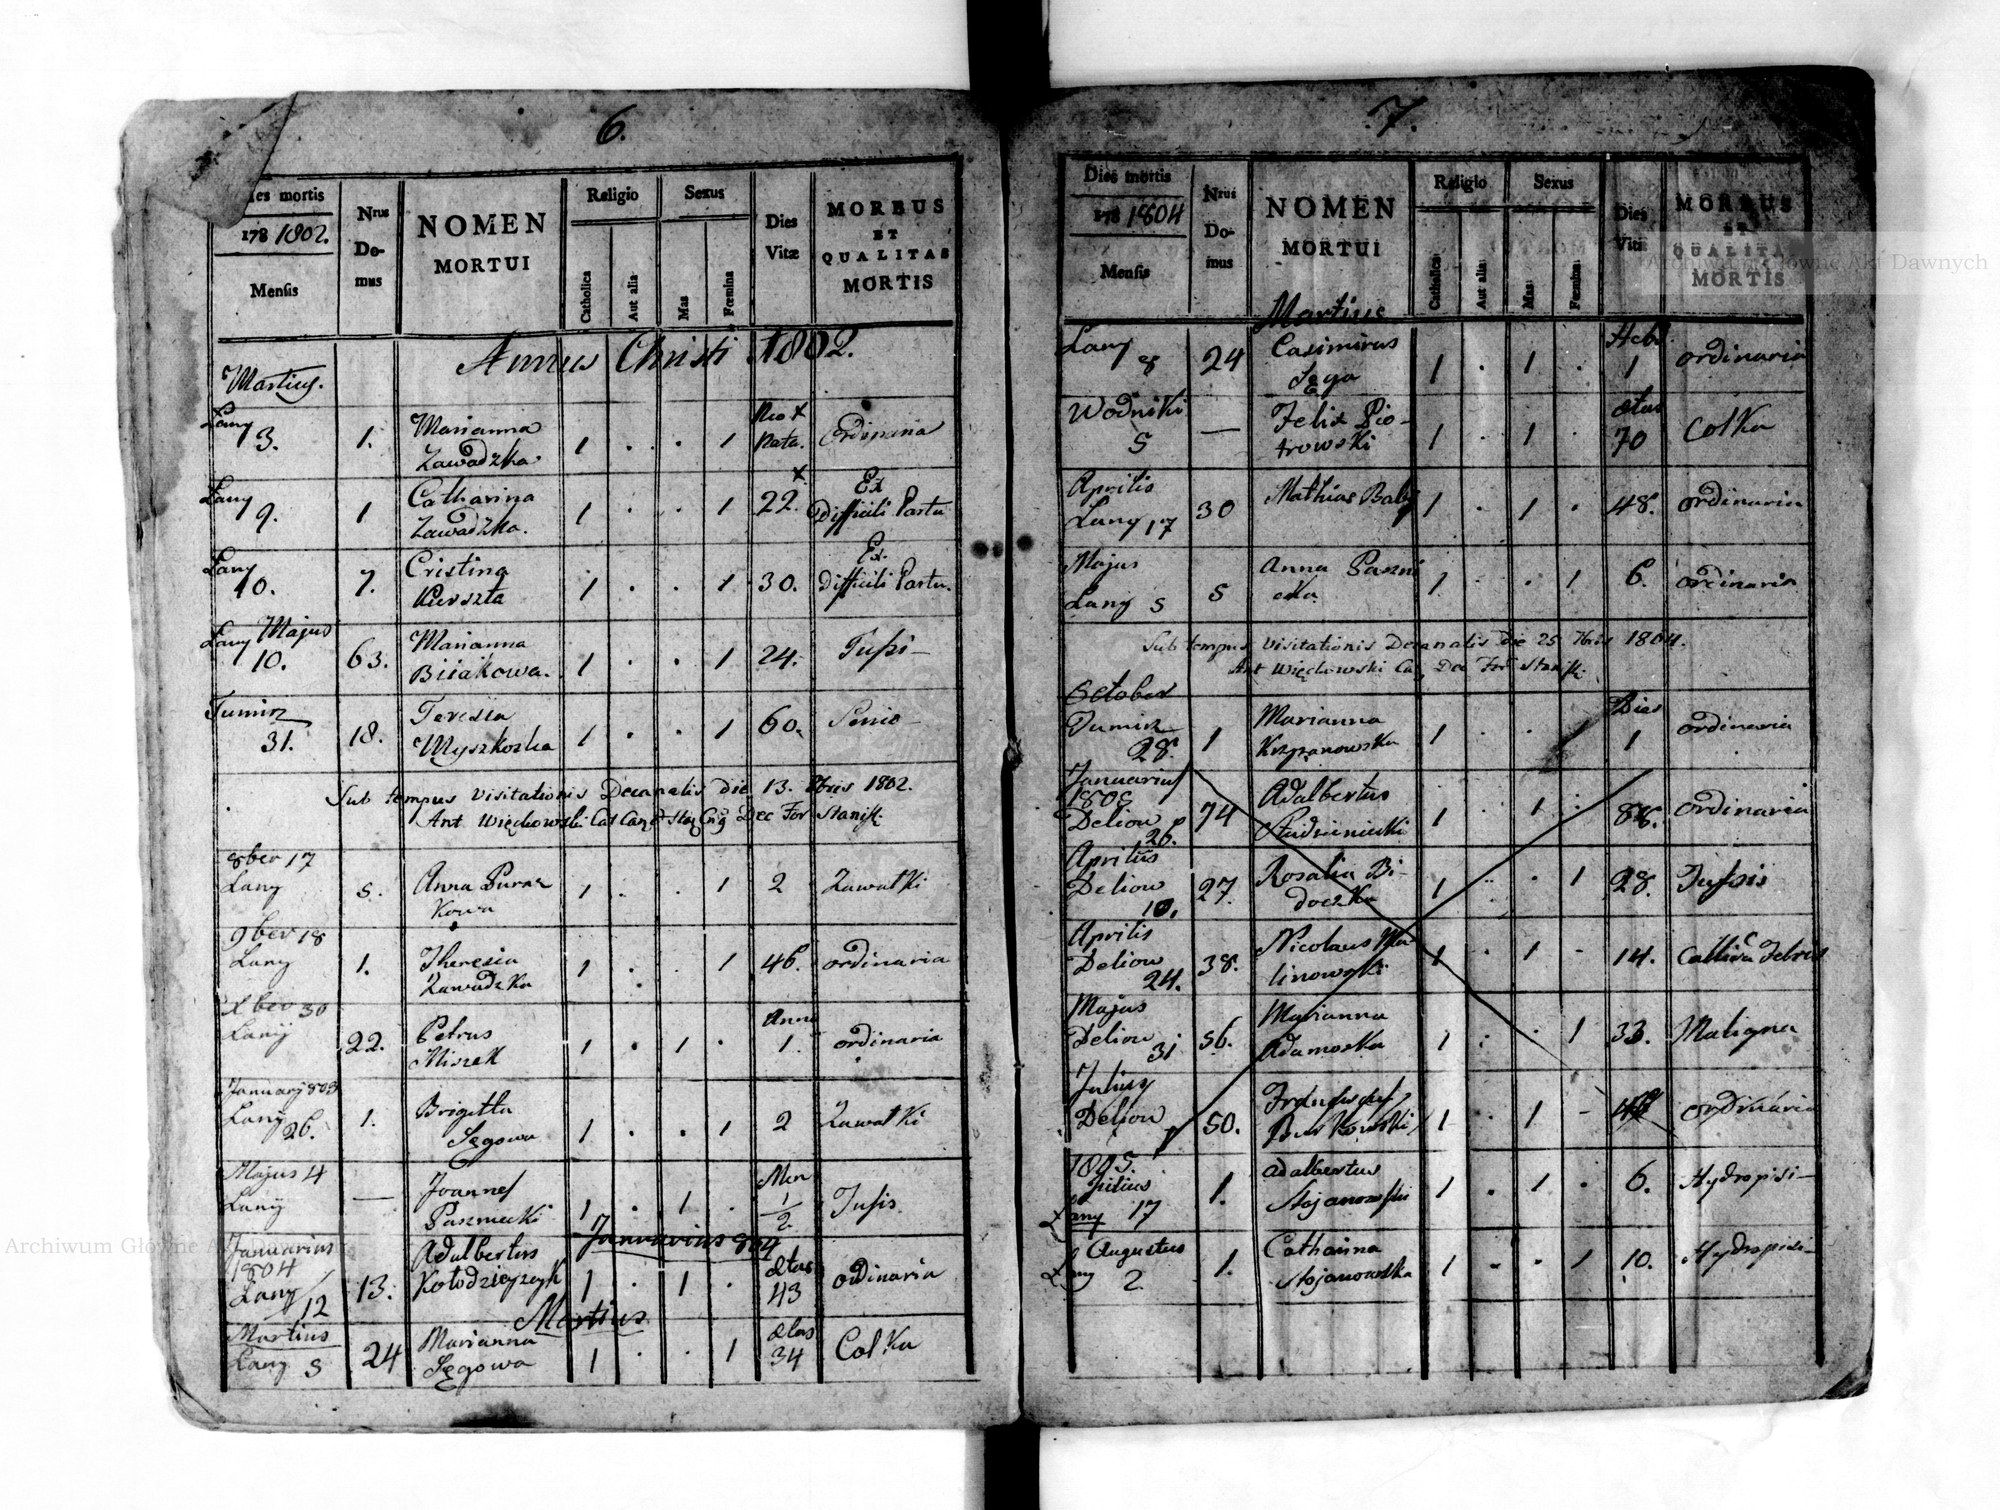 6.
Dies mortis
178 1802.
Mensis
Nrus Domus
NOMEN
MORTUI
Religio
Catholica
Aut alia
Sexus
Mas
Fœmina
Dies Vitæ
MORBUS
ET
QUALITAS
MORTIS
Annus Christi 1802.
Martius.
Lany 3. 1. Marianna Zawadzka. 1 . . 1 Neo nata. Ordinaria
Lany 9. 1 Catharina Zawadzka. 1 . . 1 22. Ex Difficili Partu
Lany 10. 7. Cristina Kurszta 1 . . 1 30. Ex Difficili Partu.
Lany Majus 10. 63. Marianna Bisiakowa. 1 . . 1 24. Tussi
Tumin 31. 18. Teresia Myszkoska 1 . . 1 60. Senio
Sub tempus Visitationis Decanalis die 13. 8bris 1802.
Ant Więckowski Dec For Stanisł.
8ber 17 Lany 5. Anna Puraz Kowa 1 . . 1 2 Zawatki
9ber 18 Lany 1. Theresia Zawadzka 1 . . 1 46. ordinaria
Xber 30 Lany 22. Petrus Miszek 1 . 1 . Anno 1. ordinaria
January 803 Lany 26. 1. Brigitta Sęgowa 1 . . 1 2 Zawatki
Majus 4 Lany — Joannes Paszniecki 1 . 1 . Men 1/2 Tusis
Januarius 804
Januarius 1804 Lany 12 13. Adalbertus Kołodzieyczyk 1 . 1 . Ætas 43 ordinaria
Martius
Martius Lany 5 24 Marianna Sęgowa 1 . . 1 Ætas 34 Colka
7.
Dies mortis
178 1804
Mensis
Nrus Domus
NOMEN
MORTUI
Religio
Catholica
Aut alia
Sexus
Mas
Fœmina
Dies Vitæ
MORBUS
ET
QUALITAS
MORTIS
Martius
Lany 8 24 Casimirus Sęga 1 . 1 . Heb. 1 ordinaria
Wodniki 5 — Felix Piotrowski 1 . 1 . ætas 70 Colka
Aprilis Lany 17 30 Mathias Baly 1 . 1 . 48. ordinaria
Majus Lany 5 5 Anna Paszni cka 1 . . 1 6. ordinaria
Sub tempus Visitationis Decanalis die 25 7bris 1804.
Ant Więckowski Can, Dec For Stanisł.
October Tumin 28. 1 Marianna Krzyzanowska 1 . . 1 Dies 1 ordinaria
Januarius 1805 Deliow 26. 74 Adalbertus 1 . 1 . ordinaria
Aprilis Deliow 10. 27. Rosalia Bidoczka 1 . . 1 28. Tussis
Aprilis Deliow 24. 38. Nicolaus Malinowski 1 . 1 - 14. Callida Febris
Majus Deliow 31 56. Marianna Adamoska 1 . . 1 33. Maligna
Julius Deliow 50. 1 . 1 - ordinaria
1805. Julius Lany 17 1. Adalbertus Stojanowski 1 . 1 . 6. Hydropisi
Augustus Lany 2. 1. Catharina Stojanowska 1 . . 1 10. Hydropisi
Archiwum Główne Akt Dawnych
Archiwum Główne Akt Dawnych